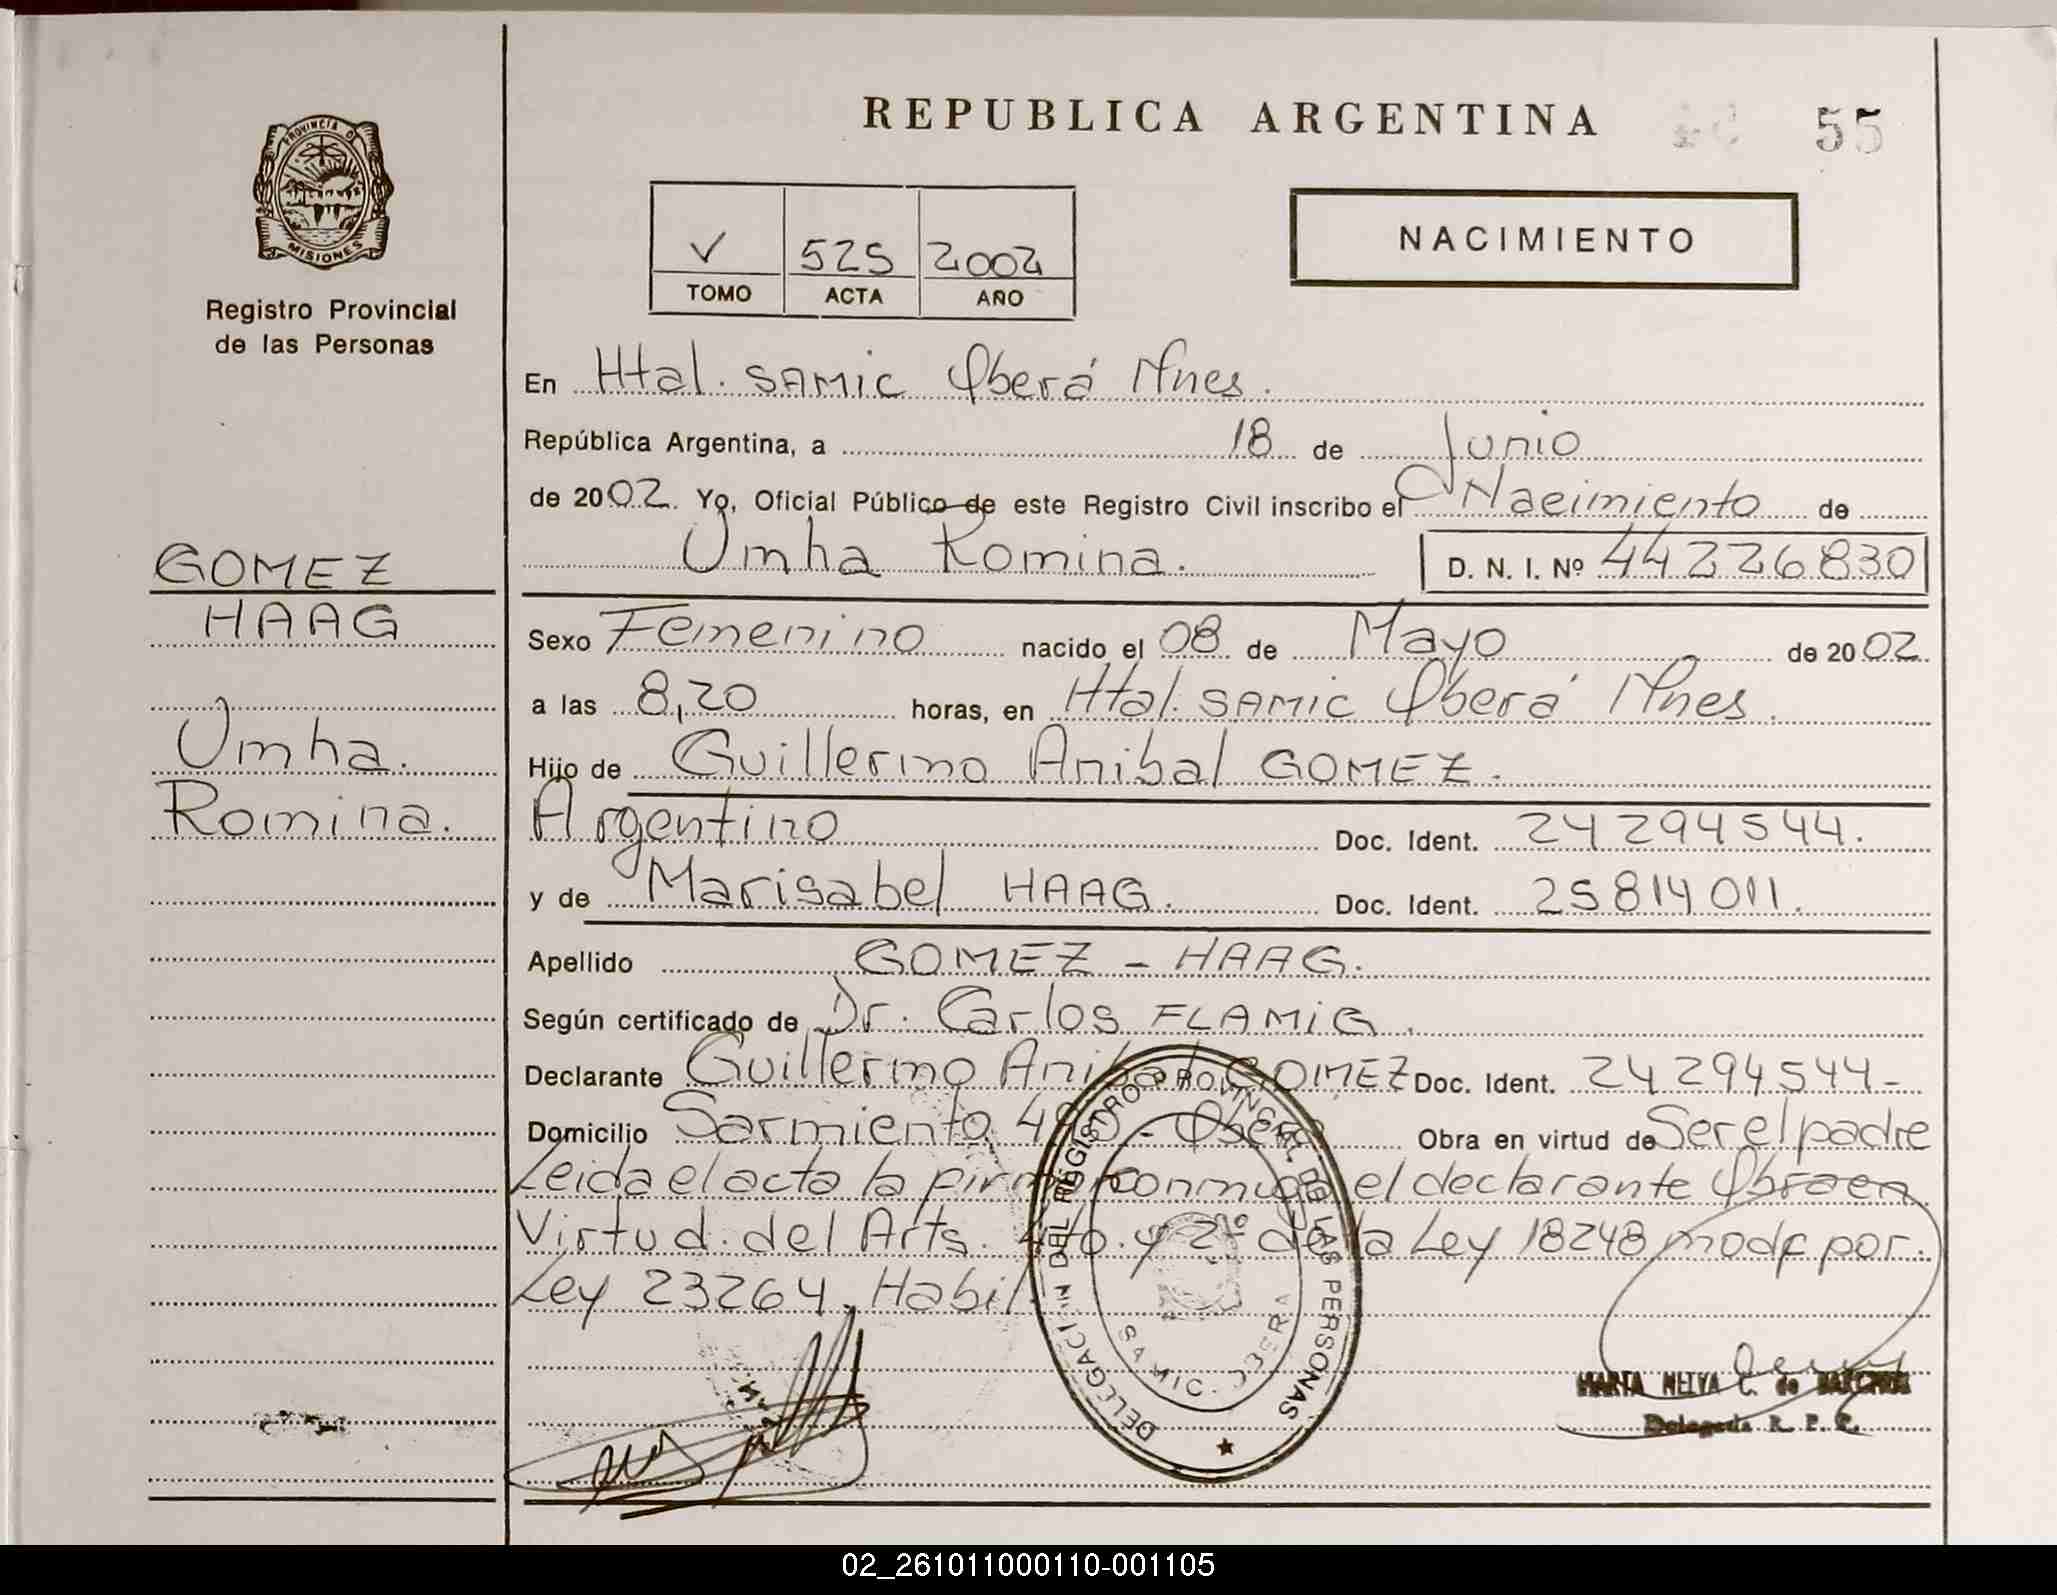 REPUBLICA ARGENTINA 55
PROVINCIA DE MISIONES
Registro Provincial
de las Personas
NACIMIENTO
V 525 2002
TOMO ACTA AÑO
En Htal. SAMIC Oberá Mnes.
República Argentina, a 18 de Junio
de 2002. Yo, Oficial Público de este Registro Civil inscribo el Nacimiento de
Umha Romina. D. N. I. Nº 44226830
GOMEZ
HAAG
Umha.
Romina.
Sexo Femenino nacido el 08 de Mayo de 2002.
a las 8,20 horas, en Htal. SAMIC Oberá Mnes.
Hijo de Guillermo Anibal GOMEZ.
Argentino Doc. Ident. 24294544.
y de Marisabel HAAG. Doc. Ident. 25814011.
Apellido GOMEZ - HAAG.
Según certificado de Dr. Carlos FLAMIG.
Declarante Guillermo Anibal GOMEZ Doc. Ident. 24294544-
Domicilio Sarmiento 490 - Oberá Obra en virtud de Ser el padre
Leida el acta la firma conmigo el declarante Obra en
Virtud del Arts. 4to. y 2º de la Ley 18248 modf por.
Ley 23264, Habil.
DELEGACION DEL REGISTRO PROVINCIAL DE LAS PERSONAS
SAMIC - OBERA
MARTA NELVA C. de
Delegada R. P. P.
02_261011000110-001105